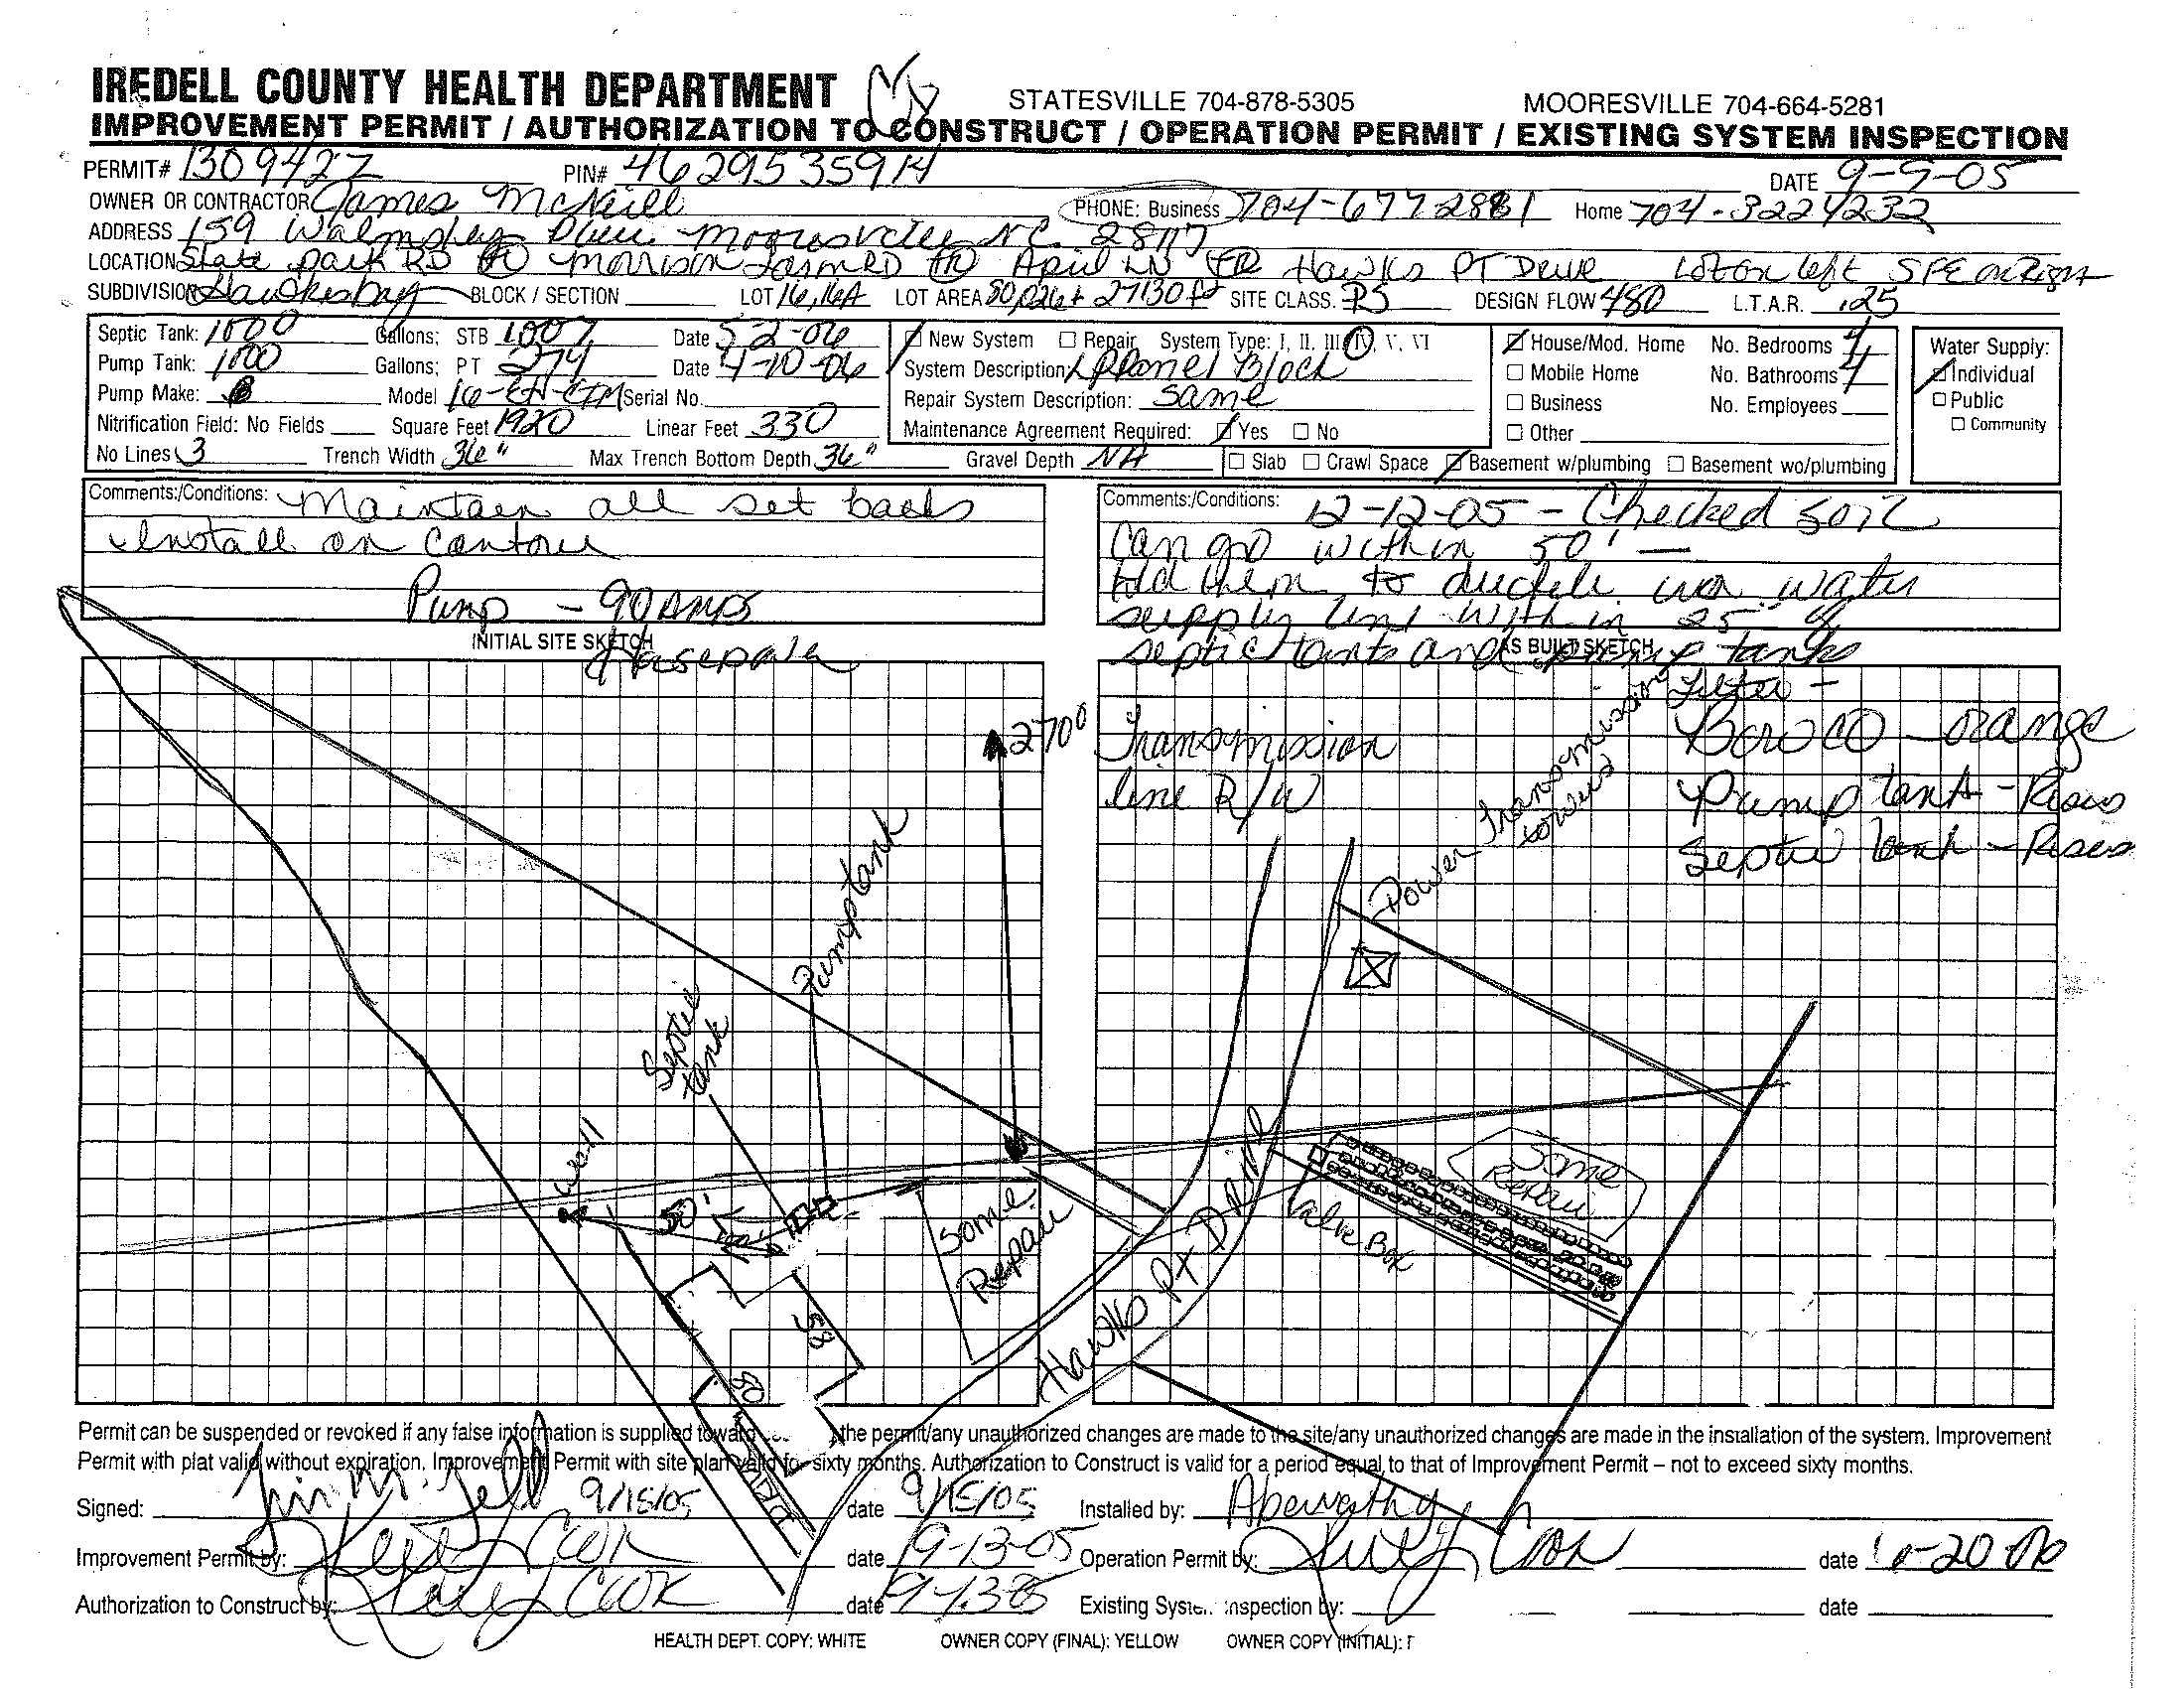 IREDELL COUNTY HEALTH DEPARTMENT STATESVILLE 704-878-5305 MOORESVILLE 704-664-5281
IMPROVEMENT PERMIT / AUTHORIZATION TO CONSTRUCT / OPERATION PERMIT / EXISTING SYSTEM INSPECTION
PERMIT# 1309427 PIN# 462953591 DATE 9-9-05
OWNER OR CONTRACTOR James McNeill PHONE: Business 704-677 2881 Home 704-3224232
ADDRESS 159 Walmsley Place Mooresville NC 28117
LOCATION State park RD Morrison Farm RD April LN Hawks PT Drive Lot on left SPE on Right
SUBDIVISION Hawkesbay BLOCK / SECTION LOT 16,16A LOT AREA SITE CLASS. PS DESIGN FLOW 480 L.T.A.R. .25
Septic Tank: 1000 Gallons: STB 1007 Date 5-2-06
Pump Tank: 1000 Gallons: PT 274 Date 4-10-06
Pump Make: Model Serial No.
Nitrification Field: No Fields Square Feet 1920 Linear Feet 330
No Lines 3 Trench Width 36" Max Trench Bottom Depth 36" Gravel Depth NA
New System Repair System Type: I, II, III, IV, V, VI
System Description LP Panel Block
Repair System Description: Same
Maintenance Agreement Required: Yes No
House/Mod. Home No. Bedrooms 4
Mobile Home No. Bathrooms 4
Business No. Employees
Other
Slab Crawl Space Basement w/plumbing Basement wo/plumbing
Water Supply:
Individual
Public
Community
Comments:/Conditions: Maintain all set backs
Install on contour
Pump - 90 AMPS
Comments:/Conditions: 12-12-05 - Checked soil
Can go within 50' -
told them to ductile iron water
supply line within 25' of
septic tanks and pump tanks
INITIAL SITE SKETCH
AS BUILT SKETCH
270°
Pump tank
Septic tank
Well
50'
Some Repair
58
80
Transmission
line R/W
Power Transmission
towers
Filter -
Pump tank - Risers
Septic tank - Risers
Some
Repair
Valve Box
Hawks Pt Drive
Permit can be suspended or revoked if any false information is supplied toward the permit/any unauthorized changes are made to the site/any unauthorized changes are made in the installation of the system. Improvement
Permit with plat valid without expiration. Improvement Permit with site plan valid for sixty months. Authorization to Construct is valid for a period equal to that of Improvement Permit – not to exceed sixty months.
Signed: 9/15/05 date 9/15/05 Installed by: Abernathy
Improvement Permit by: Cook date 9-13-05 Operation Permit by: Cook date
Authorization to Construct by: Cook date 9-13-05 Existing System Inspection by: date
HEALTH DEPT. COPY: WHITE OWNER COPY (FINAL): YELLOW OWNER COPY (INITIAL):